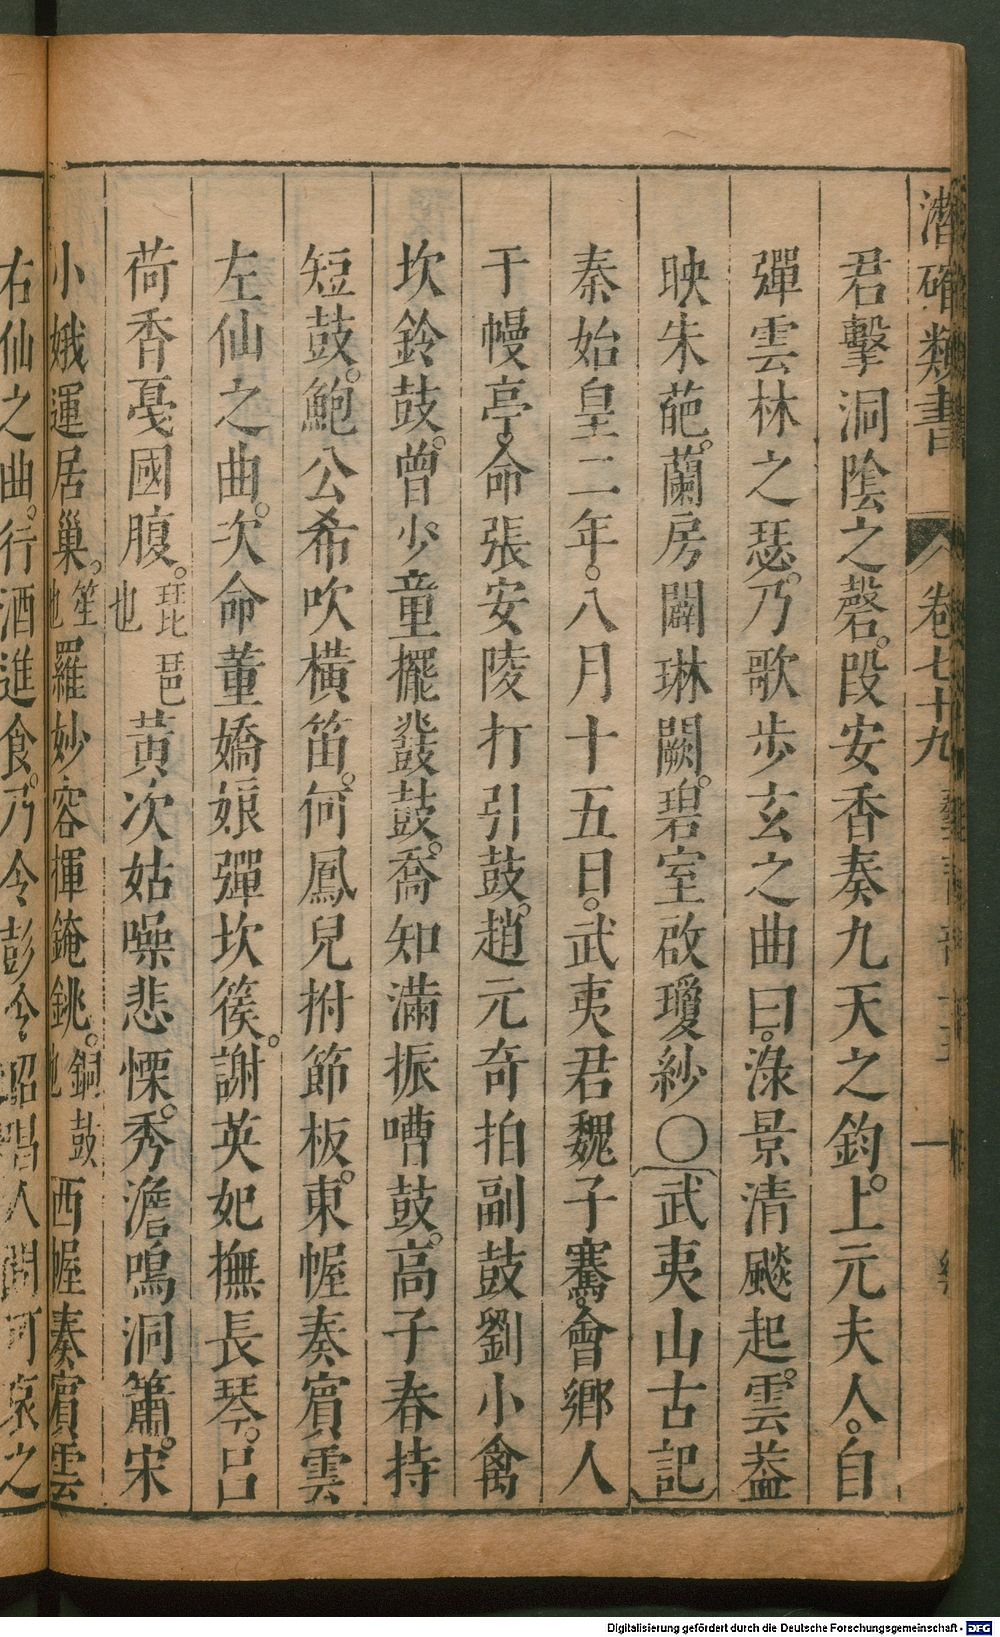 潛確類書 卷七十九
君擊洞陰之磬。段安香奏九天之鈞。上元夫人。自
彈雲林之瑟。乃歌步玄之曲曰。淥景清飈起。雲葢
映朱葩。蘭房闢琳闕。碧室啟瓊紗〇〔武夷山古記〕
秦始皇二年。八月十五日。武夷君魏子騫。會鄉人
于幔亭。命張安陵打引鼓。趙元奇拍副鼓劉小禽
坎鈴鼓。曾少童擺鼗鼓。喬知滿振嘈鼓。高子春持
短鼓。鮑公希吹橫笛。何鳳兒拊節板。東幄奏賓雲
左仙之曲。次命董嬌娘彈坎篌。謝英妃撫長琴。呂
荷香戞國腹。琵琶也黃次姑噪悲慄。秀澹鳴洞簫。宋
小娥運居巢。笙也羅妙容揮𨧀銚。銅鼓也西幄奏賓雲
右仙之曲。行酒進食。乃令彭令昭唱人間可哀之
Digitalisierung gefördert durch die Deutsche Forschungsgemeinschaft - DFG